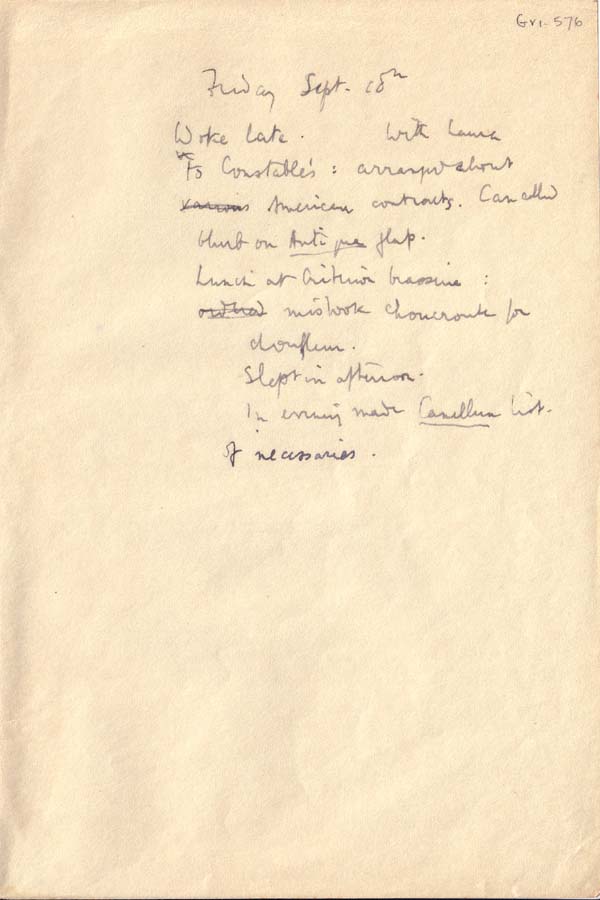 Gri-576
Friday Sept. 18th
Woke late. With Laura
To Constable's : arranged about
various American contracts. Cancelled
blurb on Antigua flap.
Lunch at Criterion brasserie :
ordered mistook choucroute for
choufleur.
Slept in afternoon.
In evening made Canellun list.
of necessaries.